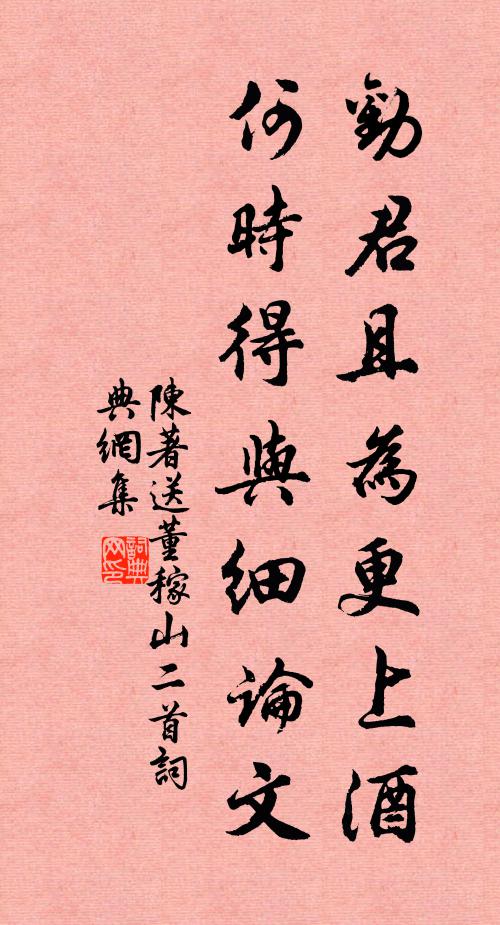 勸君且為更上酒
何時得與細論文
陳著送董稼山二首詞
典網集
詞典網印